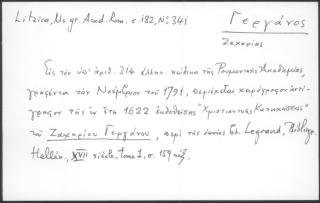 Litzica, Ms gr. Acad. Rom. σ. 182, Nο 341
Γεργάνος
Ζαχαρίας
Εἰς τὸν ὑπ' ἀριθ. 314 ἑλλην. κώδικα τῆς Ρουμανικῆς Ἀκαδημίας,
γραφέντα τὸν Νοέμβριον τοῦ 1791, περιέχεται χειρόγραφον ἀντί-
γραφον τῆς ἐν ἔτει 1622 ἐκδοθείσης "Χριστιανικῆς Κατηχήσεως"
τοῦ Ζαχαρίου Γεργάνου, περὶ τῆς ὁποίας βλ. Legrand, Bibliogr.
Hellén., XVII siècle, tome 1, σ. 159 κἑξ.